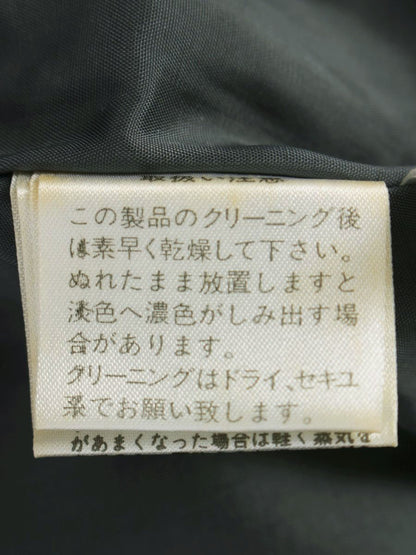 取扱い注意
この製品のクリーニング後
は素早く乾燥して下さい。
ぬれたまま放置しますと
淡色へ濃色がしみ出す場
合があります。
クリーニングはドライ、セキユ
系でお願い致します。
があまくなった場合は軽く蒸気を